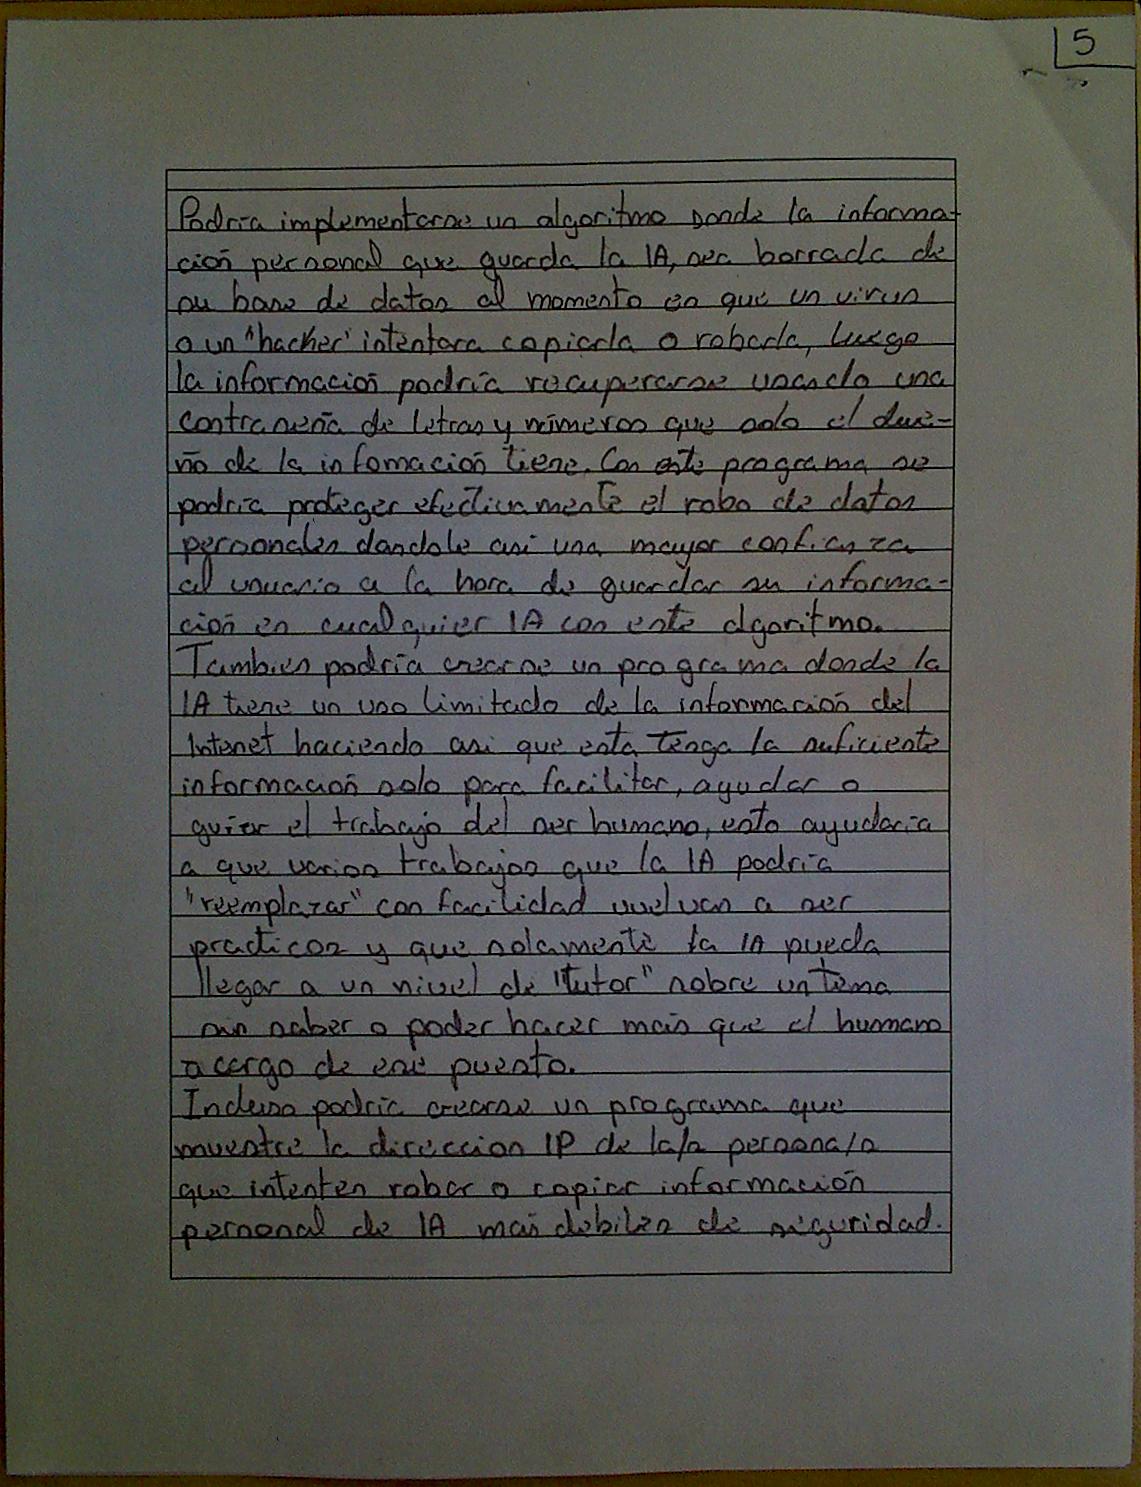 5
Podría implementarse un algoritmo donde la informa-
ción personal que guarda la IA, sea borrada de
su base de datos al momento en que un virus
o un "hacker" intentara copiarla o robarla, luego
la información podría recuperarse usando una
contraseña de letras y números que solo el due-
ño de la infomación tiene. Con este programa se
podría proteger efectivamente el robo de datos
personales dandole asi una mayor confianza
al usuario a la hora de guardar su informa-
ción en cualquier IA con este algoritmo.
Tambien podría crearse un programa donde la
IA tiene un uso limitado de la información del
Intenet haciendo asi que esta tenga la suficiente
información solo para facilitar, ayudar o
guiar el trabajo del ser humano, esto ayudaría
a que varios trabajos que la IA podría
"reemplazar" con facilidad vuelvan a ser
practicos y que solamente la IA pueda
llegar a un nivel de "tutor" sobre un tema
sin saber o poder hacer más que el humano
a cargo de ese puesto.
Incluso podría crearse un programa que
muestre la direccion IP de la/s persona/s
que intenten robar o copiar información
personal de IA más debiles de seguridad.